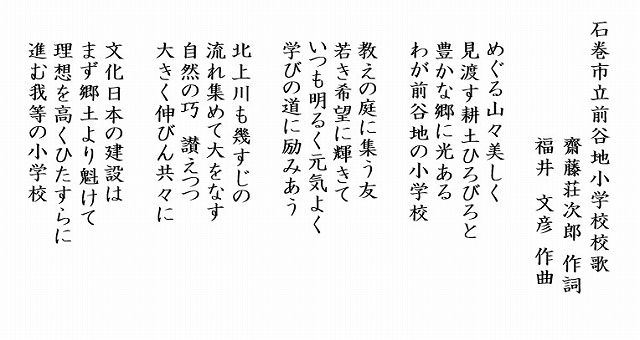 石巻市立前谷地小学校校歌
齋藤荘次郎 作詞
福井 文彦 作曲
めぐる山々美しく
見渡す耕土ひろびろと
豊かな郷に光ある
わが前谷地の小学校
教えの庭に集う友
若き希望に輝きて
いつも明るく元気よく
学びの道に励みあう
北上川も幾すじの
流れ集めて大をなす
自然の巧 讃えつつ
大きく伸びん共々に
文化日本の建設は
まず郷土より魁けて
理想を高くひたすらに
進む我等の小学校